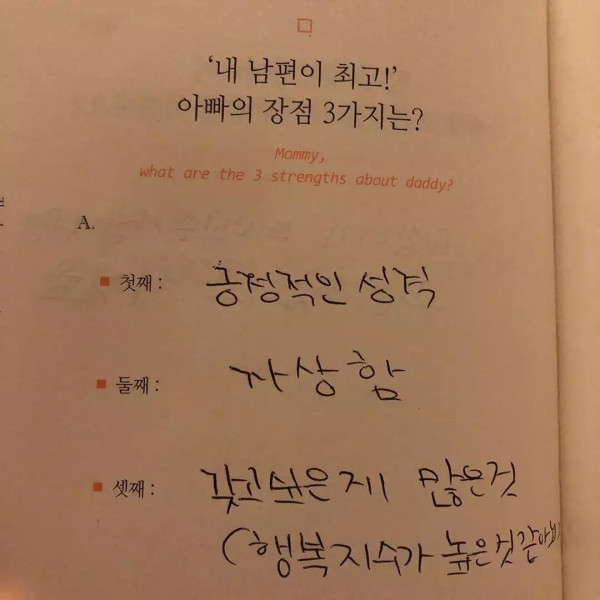 ‘내 남편이 최고!’
아빠의 장점 3가지는?
Mommy,
what are the 3 strengths about daddy?
A.
첫째 : 긍정적인 성격
둘째 : 자상함
셋째 : 갖고싶은게 많은것
(행복지수가 높은것같아